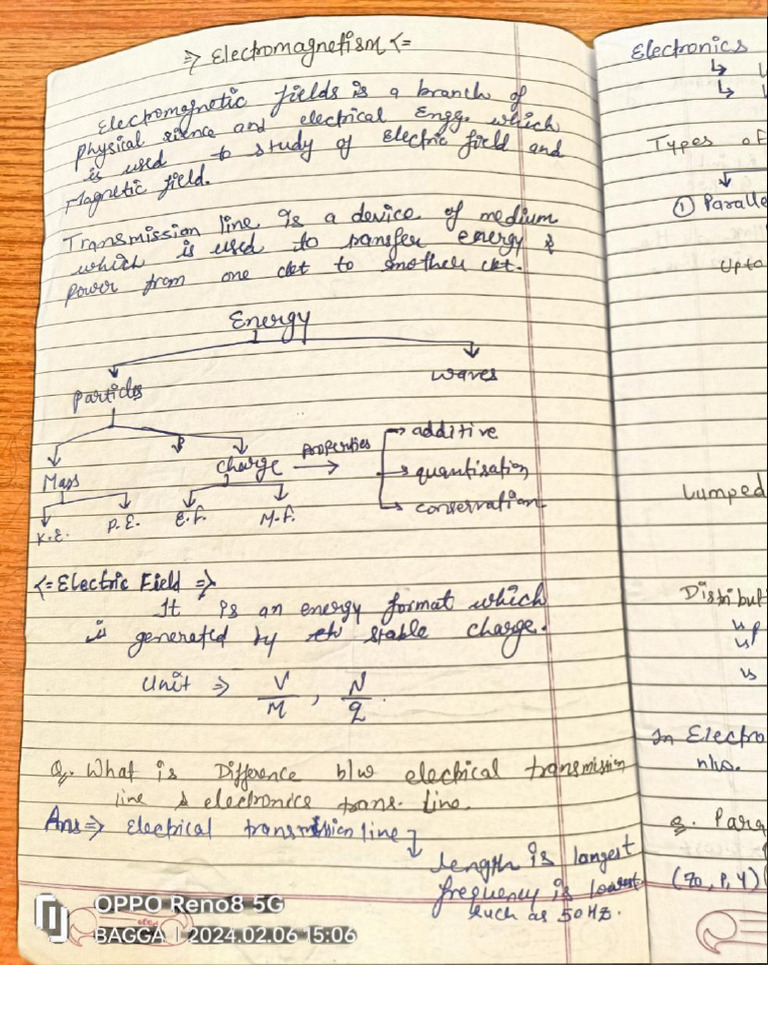 ⇒ Electromagnetism <=
Electromagnetic fields is a branch of
physical sience and electrical Engg. which
is used to study of Electric field and
Magnetic field.
Transmission line is a device of medium
which is used to transfer energy &
power from one ckt to another ckt.
Energy
Particles
waves
Mass
charge
Properties
additive
quantisation
conservation
K.E.
P.E.
E.F.
M.F.
<= Electric Field =>
It is an energy format which
is generated by stable charge.
Unit ⇒ V/M , N/q
Q. What is Difference b/w electrical transmission
line & electronics trans. line.
Ans ⇒ Electrical transmission line
length is largest
frequency is lowest
such as 50 Hz.
Electronics
Types of
① Paralle
Upto
Lumped
Distribut
In Electro
Q. Para
OPPO Reno8 5G
BAGGA | 2024.02.06 15:06